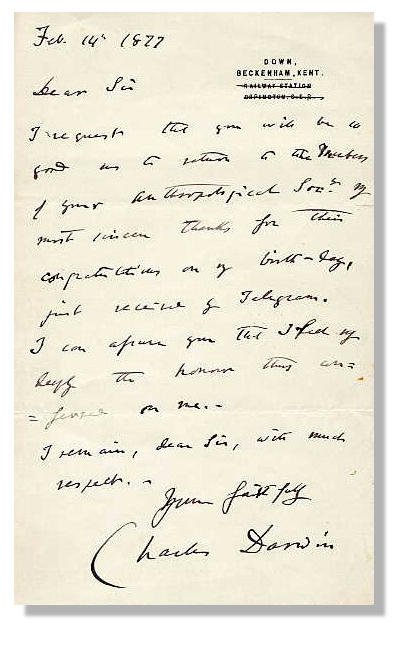 Feb. 14th 1877
DOWN,
BECKENHAM, KENT.
RAILWAY STATION
ORPINGTON. S.E.R.
Dear Sir
I request that you will be so
good as to return to the Members
of your Anthropological Socy. my
most sincere thanks for their
congratulations on my birth-day,
just received by Telegram.
I can assure you that I feel
deeply the honour thus con=
=ferred on me.–
I remain, dear Sir, with much
respect. –
Yours faithfully
Charles Darwin